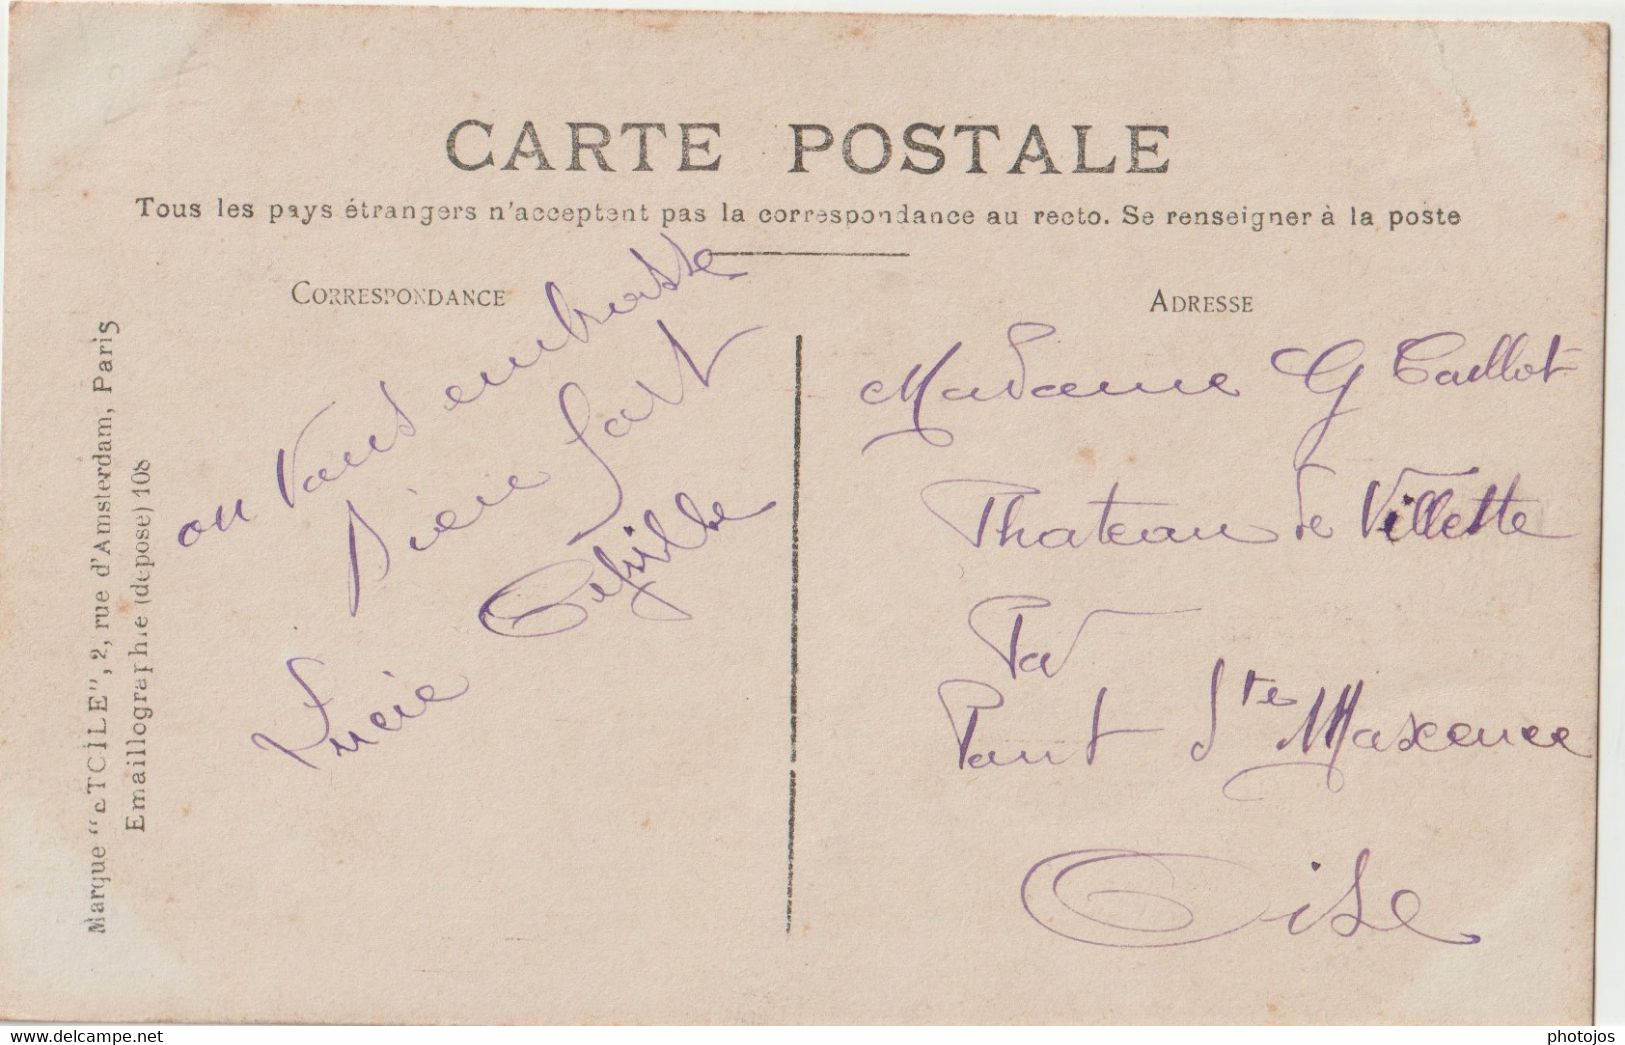 CARTE POSTALE
Tous les pays étrangers n'acceptent pas la correspondance au recto. Se renseigner à la poste
CORRESPONDANCE
ADRESSE
Marque "ETOILE", 2, rue d'Amsterdam, Paris
Emaillographie (déposé) 108
on vous embrasse
bien fort
Lucie
Madame G Caillot
Chateau de Villette
Par
Pont Ste Maxence
Oise
www.delcampe.net
photojos